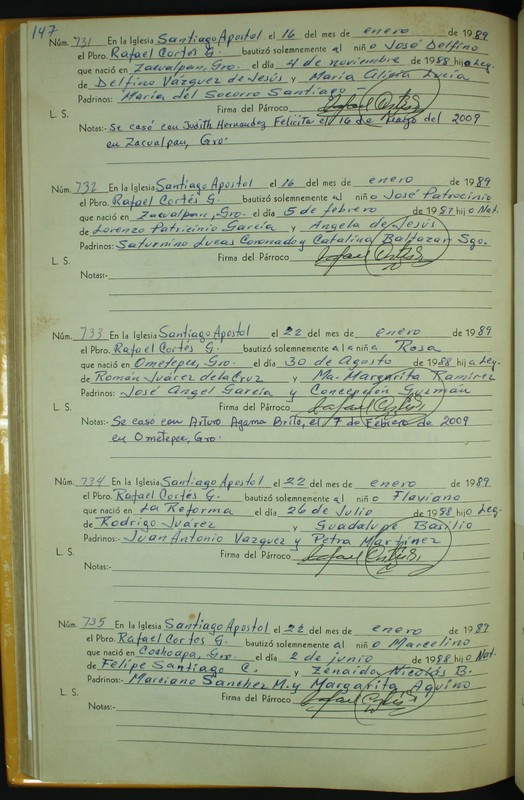 147
Núm. 731 En la Iglesia Santiago Apostol el 16 del mes de enero de 1989
el Pbro. Rafael Cortés G. bautizó solemnemente al niño José Delfino
que nació en Zacualpan, Gro. el día 4 de noviembre de 1988 hijo Leg.
de Delfino Vázquez de Jesús y María Lucia
Padrinos: María del Socorro Santiago -
L. S. Firma del Párroco Rafael Cortés G.
Notas:- Se casó con Judith Hernandez Felicita el 16 de Marzo del 2009
en Zacualpan, Gro.
Núm. 732 En la Iglesia Santiago Apostol el 16 del mes de enero de 1989
el Pbro. Rafael Cortés G. bautizó solemnemente al niño José Patrocinio
que nació en Zacualpan, Gro. el día 5 de febrero de 1987 hijo Nat.
de Lorenzo Patricinio García y Angela de Jesús
Padrinos: Saturnino Lucas Coronado y Catalina Baltazar Sgo.
L. S. Firma del Párroco Rafael Cortés G.
Notas:-
Núm. 733 En la Iglesia Santiago Apostol el 22 del mes de enero de 1989
el Pbro. Rafael Cortés G. bautizó solemnemente a la niña Rosa
que nació en Ometepec, Gro. el día 30 de Agosto de 1988 hija Leg.
de Román Juárez de la Cruz y Ma. Margarita Ramírez
Padrinos: José Angel García y Concepción Guzmán
L. S. Firma del Párroco Rafael Cortés G.
Notas:- Se caso con Arturo Agama Brito, el 7 de Febrero de 2009
en Ometepec, Gro.
Núm. 734 En la Iglesia Santiago Apostol el 22 del mes de enero de 1989
el Pbro. Rafael Cortés G. bautizó solemnemente al niño Flaviano
que nació en La Reforma el día 26 de Julio de 1988 hijo Leg.
de Rodrigo Juárez y Guadalupe Basilio
Padrinos:- Juan Antonio Vazquez y Petra Martínez
L. S. Firma del Párroco Rafael Cortés G.
Notas:-
Núm. 735 En la Iglesia Santiago Apostol el 22 del mes de enero de 1989
el Pbro. Rafael Cortés G. bautizó solemnemente al niño Marcelino
que nació en Cochoapa, Gro. el día 2 de junio de 1988 hijo Nat.
de Felipe Santiago C. y Zenaida Nicolás B.
Padrinos:- Marciano Sanchez M. y Margarita Aquino
L. S. Firma del Párroco Rafael Cortés G.
Notas:-